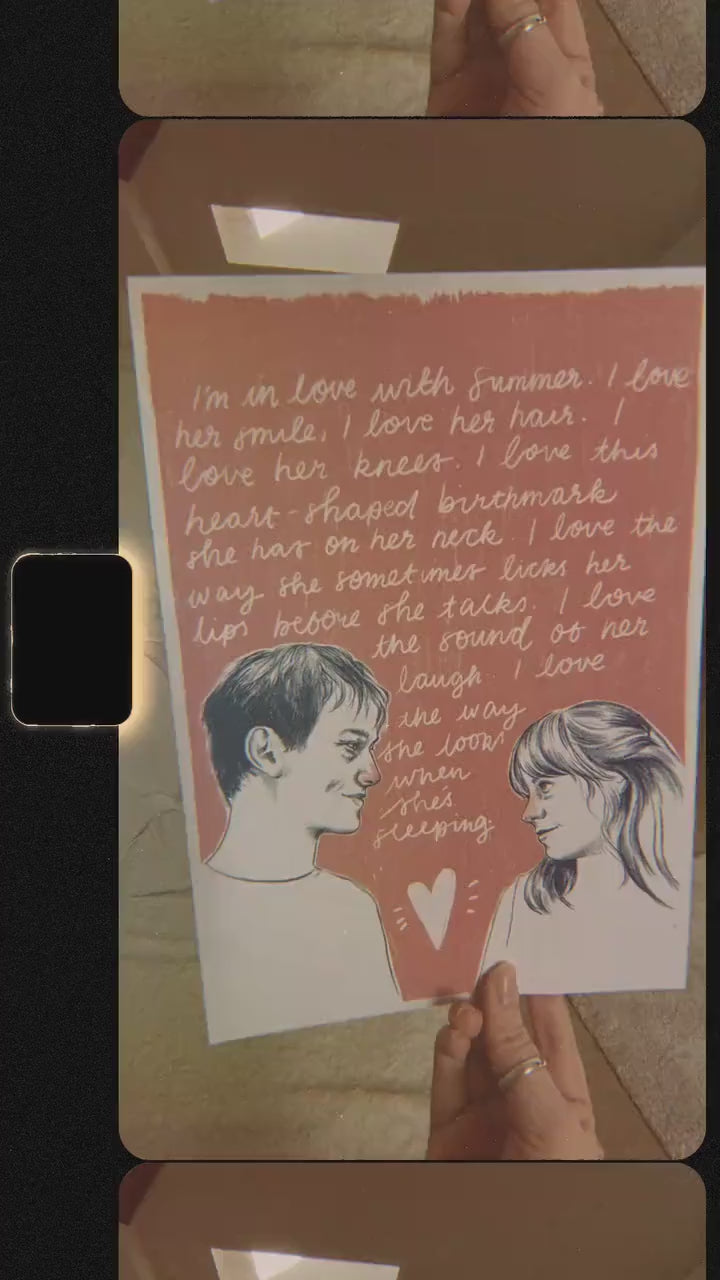 I'm in love with Summer. I love
her smile, I love her hair. I
love her knees. I love this
heart-shaped birthmark
she has on her neck. I love the
way she sometimes licks her
lips before she talks. I love
the sound of her
laugh. I love
the way
she looks
when
she's
sleeping.